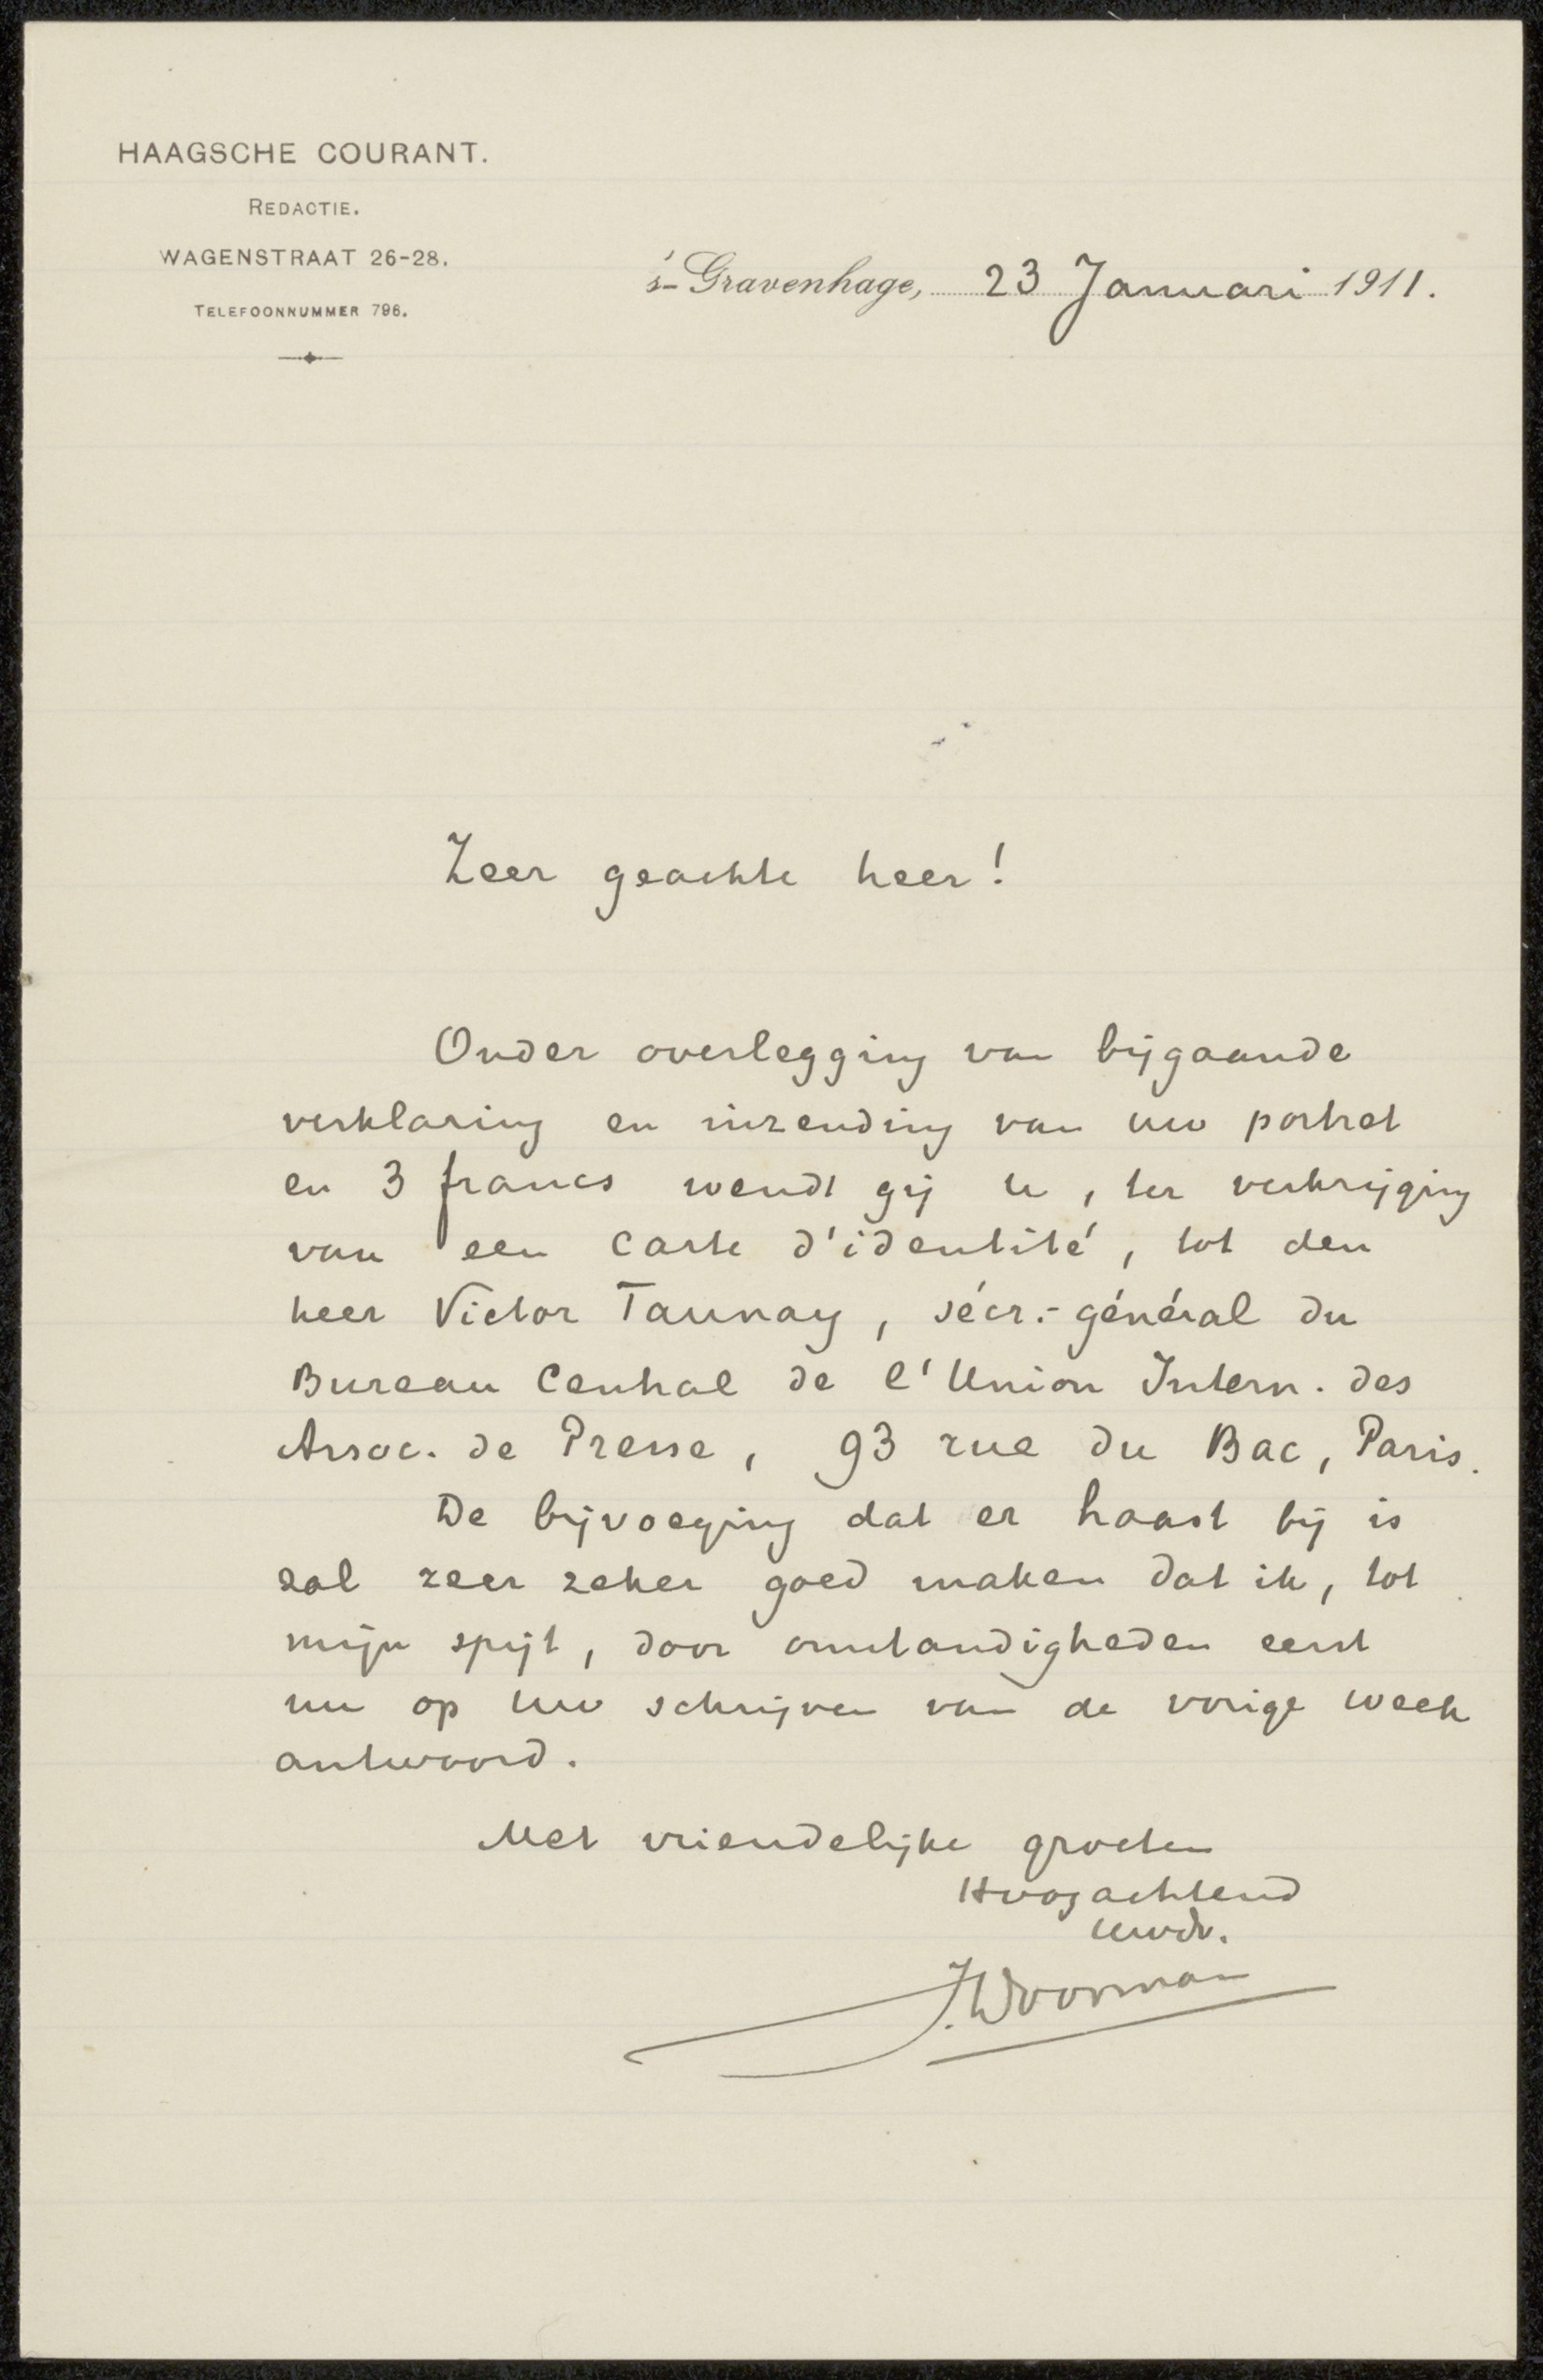 HAAGSCHE COURANT.
REDACTIE.
WAGENSTRAAT 26-28.
TELEFOONNUMMER 796.
's-Gravenhage, 23 Januari 1911.
Zeer geachte heer!
Onder overlegging van bijgaande
verklaring en inzending van uw portret
en 3 francs wendt gij u, ter verkrijging
van een carte d'identité, tot den
heer Victor Taunay, sécr.-général du
Bureau Central de l'Union Intern. des
Assoc. de Presse, 93 rue du Bac, Paris.
De bijvoeging dat er haast bij is
zal zeer zeker goed maken dat ik, tot
mijn spijt, door omstandigheden eerst
nu op uw schrijven van de vorige week
antwoord.
Met vriendelijke groeten
Hoogachtend
Uwdr.
J. Woorman